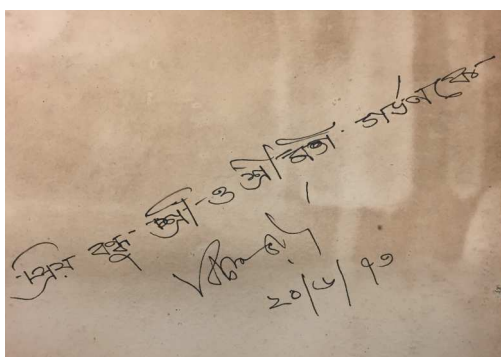 প্রিয় বন্ধু শ্রী ও শ্রীমতী গর্ডনকে
২০/৬/৭৩